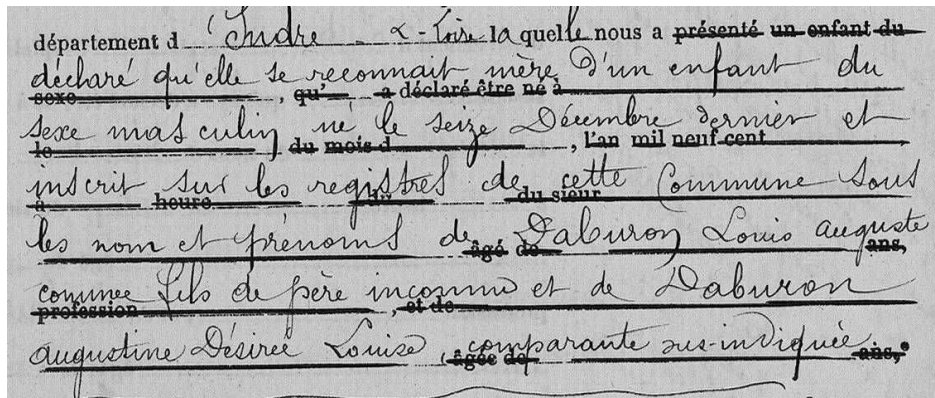 département d Indre - & - Loire laquelle nous a présenté un enfant du
déclaré qu'elle se reconnait mère d'un enfant du
sexe , qu' a déclaré être né à
sexe masculin né le seize Décembre dernier et
le du mois d , l'an mil neuf cent
inscrit sur les registres de cette Commune sous
à heure du du sieur
les nom et prénoms de Daburon Louis auguste
âgé de ans,
comme fils de père inconnu et de Daburon
profession , et de
augustine Désirée Louise , comparante sus-indiquée.
âgée de ans,